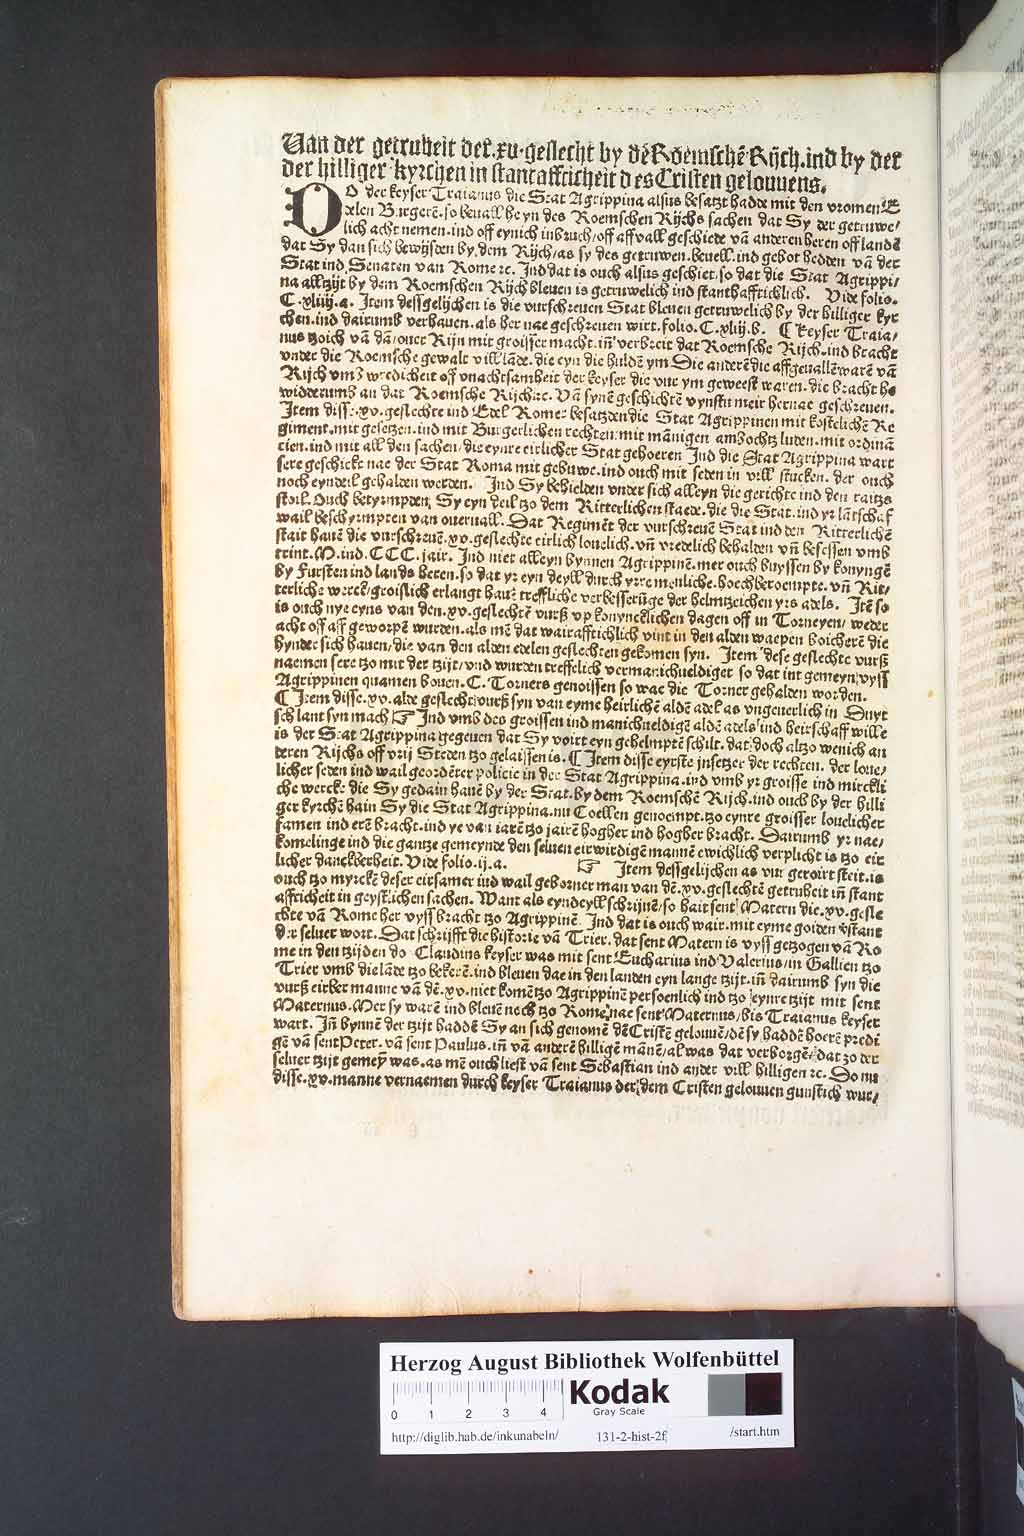 Van der getruheit der .xv. geslecht by dē Roemschē Rijch. ind by der
der hilliger kyrchen in stantaffticheit des Cristen gelouuens.
DO der keyser Traianus die Stat Agrippina alsus besatzt hadde mit den vromen
edelen Burgerē. so beuall he yn des Roemschen Rijchs sachen dat Sy der getruwe/
lich acht nemen. ind off eynich inbruch/off affvall geschiede vā anderen heren off landē
dat Sy dan sich bewijsden by dem Rijch/as sy des getruwen. beuell. ind gebot hedden vā der
Stat ind Senaten van Rome ꝛc. Ind dat is ouch alsus geschiet. so dat die Stat Agrippi/
na alltzijt by dem Roemschen Rijch bleuen is getruwelich ind stanthafftichlich. Vide folio.
C.xliiij.a. Item dessgelijchen is die vurschreuen Stat bleuen getruwelich by der billiger kyr
chen. ind dairumb verhauen. als her nae geschreuen wirt. folio. C.xliij.b. ¶ Keyser Traia/
nus tzoich vā dā/ouer Rijn mit groisser macht. iñ verbreit dat Roemsche Rijch. ind bracht
vnder die Roemsche gewalt vill lāde. die eyn die huldē ym Die anderē die affgeuallē warē vā
Rijch vmb wredicheit off vnachtsamheit der keyser die vur ym geweest waren. die bracht he
widderumb an dat Roemsche Rijch ꝛc. Vā synē geschichtē vynstu meir hernae geschreuen.
Item disse .xv. geslechte ind Edel Romer besatzden die Stat Agrippinen mit kostelichē Re
giment. mit gesetzen. ind mit Burgerlichen rechten/mit mānigen ambochtz luden. mit ordinā
cien. ind mit all den sachen/die eynre eirlicher Stat gehoeren Ind die Stat Agrippina wart
sere geschickt nae der Stat Roma mit gebuwe. ind ouch mit seden in vill stucken. der ouch
noch eyndeil gehalden werden. Ind Sy behielden vnder sich alleyn die gerichte ind den raitzs
stoil. Ouch betympden Sy eyn deil tzo dem Ritterlichen staede. die die Stat. ind yr lātschaf
wail beschyrmpten van ouervall. Dat Regimēt der vurschreuē Stat ind den Ritterlichē
stait hauē die vurschreuē .xv. geslechte eirlich louelich. vñ vredelich behalden vñ besessen vmb
trint. M. ind. CCC. jair. Ind niet alleyn bynnen Agrippinē. mer ouch buyssen by konyngē
by Fursten ind lands heren. so dat yr eyn deyll durch yrre menliche. hoechberoempte. vñ Rit/
terliche werck/groislich erlangt hauē treffliche verbesserūge der helmtzeichen yrs adels. Itē so
is ouch nye eyns van den .xv. geslechtē vurß vp konyncklichen dagen off in Torneyen/weder
acht off aff geworpē wurden. als mē dat wairafftichlich vint in den alden waepen boicherē die
hynder sich hauen/die van den alden edelen geslechten gekomen syn. Item dese geslechte vurß
naemen sere tzo mit der tzijt/vnd wurden trefflich vermanichueldiget so dat int gemeyn vyss
Agrippinen quamen bouen. C. Torners genoissen so wae die Torner gehalden worden.
¶ Item disse .xv. alde geslecht vurß syn van eyme heirlichē aldē adel as vngeuerlich in Duyt
schlant syn mach ☞ Ind vmb des groissen ind manichueldigē aldē adels ind heirschaff wille
is der Stat Agrippina gegeuen dat Sy voirt eyn gehelmptē schilt. dat doch altzo wenich an
deren Rijchs off vrij Steden tzo gelaissen is. ¶ Item disse eyrste insetzer der rechten. der loue/
licher seden ind wail geordēter policie in der Stat Agrippina. ind vmb yr groisse ind mirckli
che wercke die Sy gedain hauē by der Stat. by dem Roemschē Rijch. ind ouch by der hilli
ger kyrchē hain Sy die Stat Agrippina. nu Coellen genoempt. tzo eynre groisser louelicher
famen ind erē bracht. ind ye van iarē tzo jairē hogher ind hogher bracht. Dairumb yr nae/
komelinge ind die gantze gemeynde den seluen eirwirdigē mannē ewichlich verplicht is tzo eir
licher danckberheit. Vide folio.ij.a. ☞ Item dessgelijchen as vur geroirt steit. is
ouch tzo myrckē deser eirsamer ind wail geborner man van dē .xv. geslechtē getruheit iñ stant
affticheit in geystlichen sachen. Want als eyndeyll schrijnē/so hait sent Matern die .xv. gesle
chte vā Rome her vyss bracht tzo Agrippinē. Ind dat is ouch wair. mit eyme goiden v̄stant
der seluer wort. Dat schrijfft die historie vā Trier. dat sent Matern is vyss getzogen vā Ro
me in den tzijden do Claudius keyser was mit sent Eucharius ind Valerius/in Gallien tzo
Trier vmb die lāde tzo bekerē. ind bleuen dae in den landen eyn lange tzijt. iñ dairumb syn die
vurß eirber manne vā dē .xv. niet komē tzo Agrippinē persoenlich ind tzo eynre tzijt mit sent
Maternus. Mer sy warē ind bleuē noch tzo Rome nae sent Maternus/bis Traianus keyser
wart. Iñ bynnē der tzijt haddē Sy an sich genomē dē Cristē gelouuē/dē sy haddē hoerē predi
gē vā sent Peter. vā sent Paulus. iñ vā anderē hilligē mānē/al was dat verborgē/dat zo der
seluer tzijt gemeyn was. as mē ouch liest vā sent Sebastian ind ander vill hilligen ꝛc. Do nu
disse .xv. manne vernaemen durch keyser Traianus der dem Cristen gelouuen gunstich wur/
Herzog August Bibliothek Wolfenbüttel
0 1 2 3 4
Kodak
Gray Scale
http://diglib.hab.de/inkunabeln/ 131-2-hist-2f /start.htm